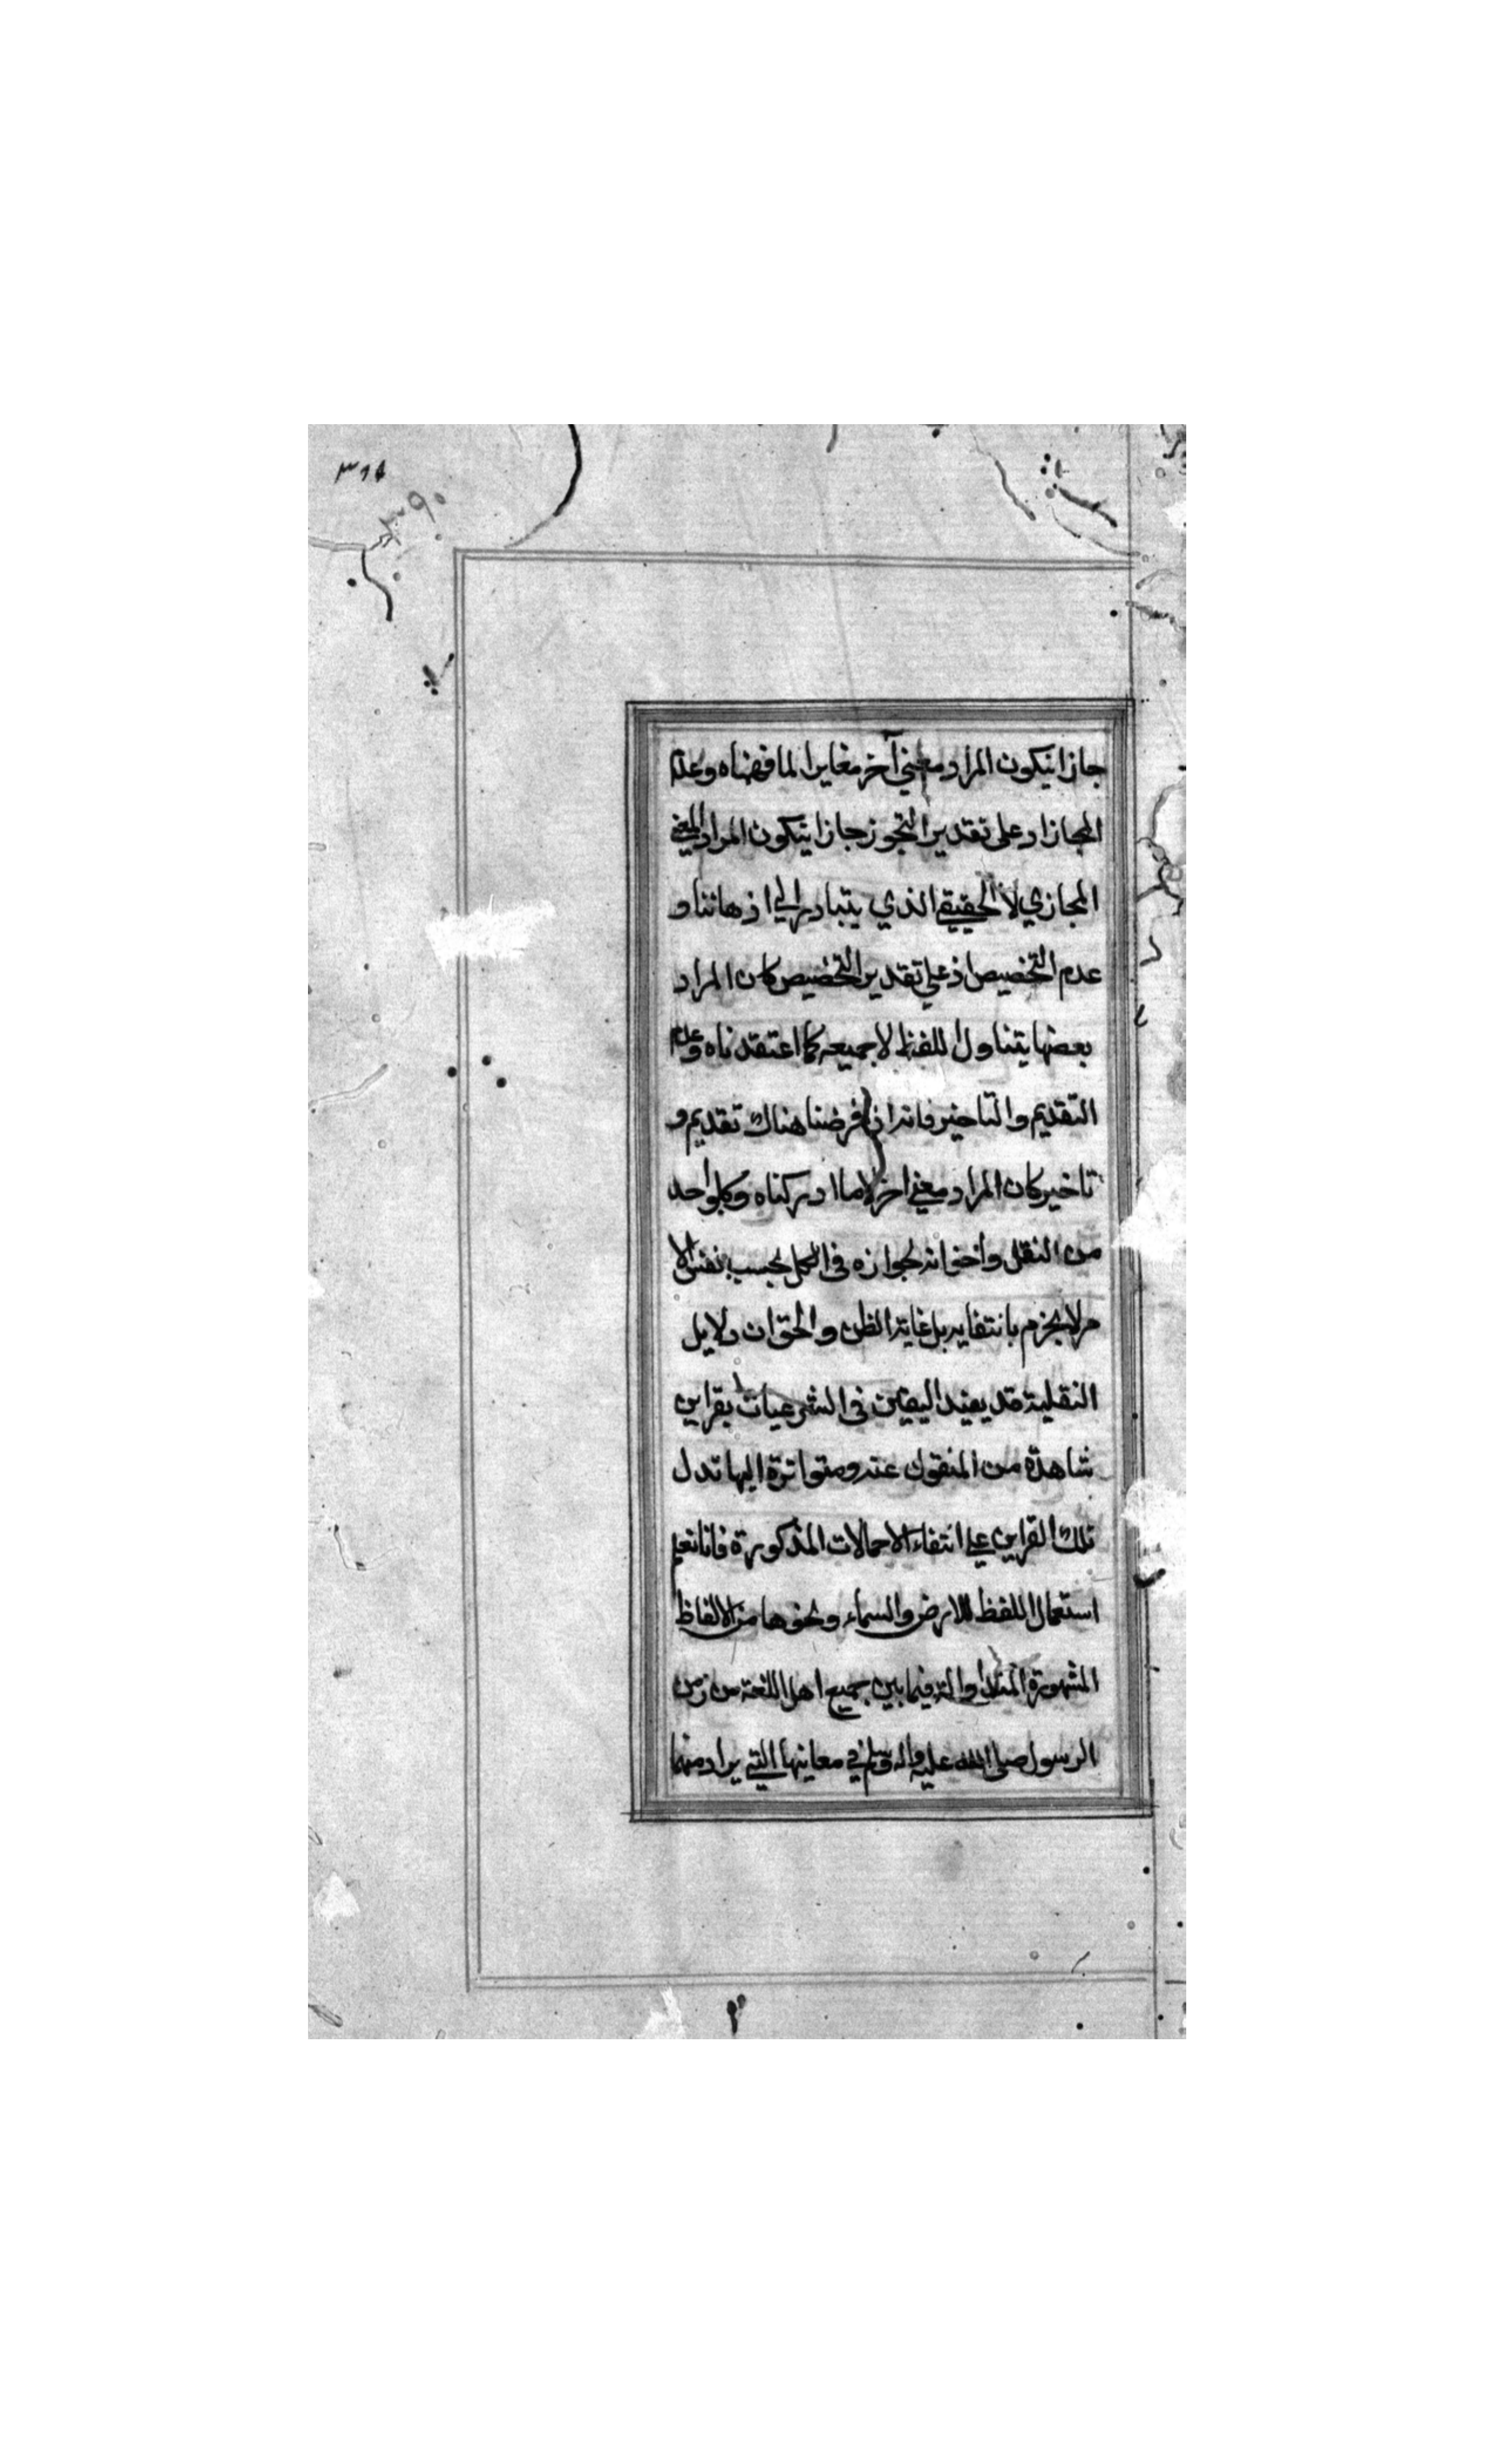 ٣٦٤
٣٩٠
جاز ان يكون المراد معني آخر مغايرا لما فهمناه وعدم
المجاز اذ على تقدير التجوز جاز ان يكون المراد المعني
المجازي لا الحقيقي الذي يتبادر الي اذهاننا و
عدم التخصيص اذ علي تقدير التخصيص كان المراد
بعض ما يتناول اللفظ لا جميعه كما اعتقدناه وعدم
التقديم والتاخير فانه اذا فرضنا هناك تقديم و
تاخير كان المراد معني اخر لا ما ادركناه وكل واحد
من النقل واخواته لجوازه في الكل بحسب نفس الا
مر لا يجزم بانتفايه بل غاية الظن والحق ان دلايل
النقلية قد يفيد اليقين في الشرعيات بقراين
شاهدة من المنقول عنه ومتواترة اليها تدل
تلك القراين علي انتفاء الاحمالات المذكورة فانا نعلم
استعمال اللفظ للارض والسماء ونحوها من الالفاظ
المشهورة المتداوله فيما بين جميع اهل اللغة من زمن
الرسول صلى الله عليه واله وسلم في معانيها التي يراد منها